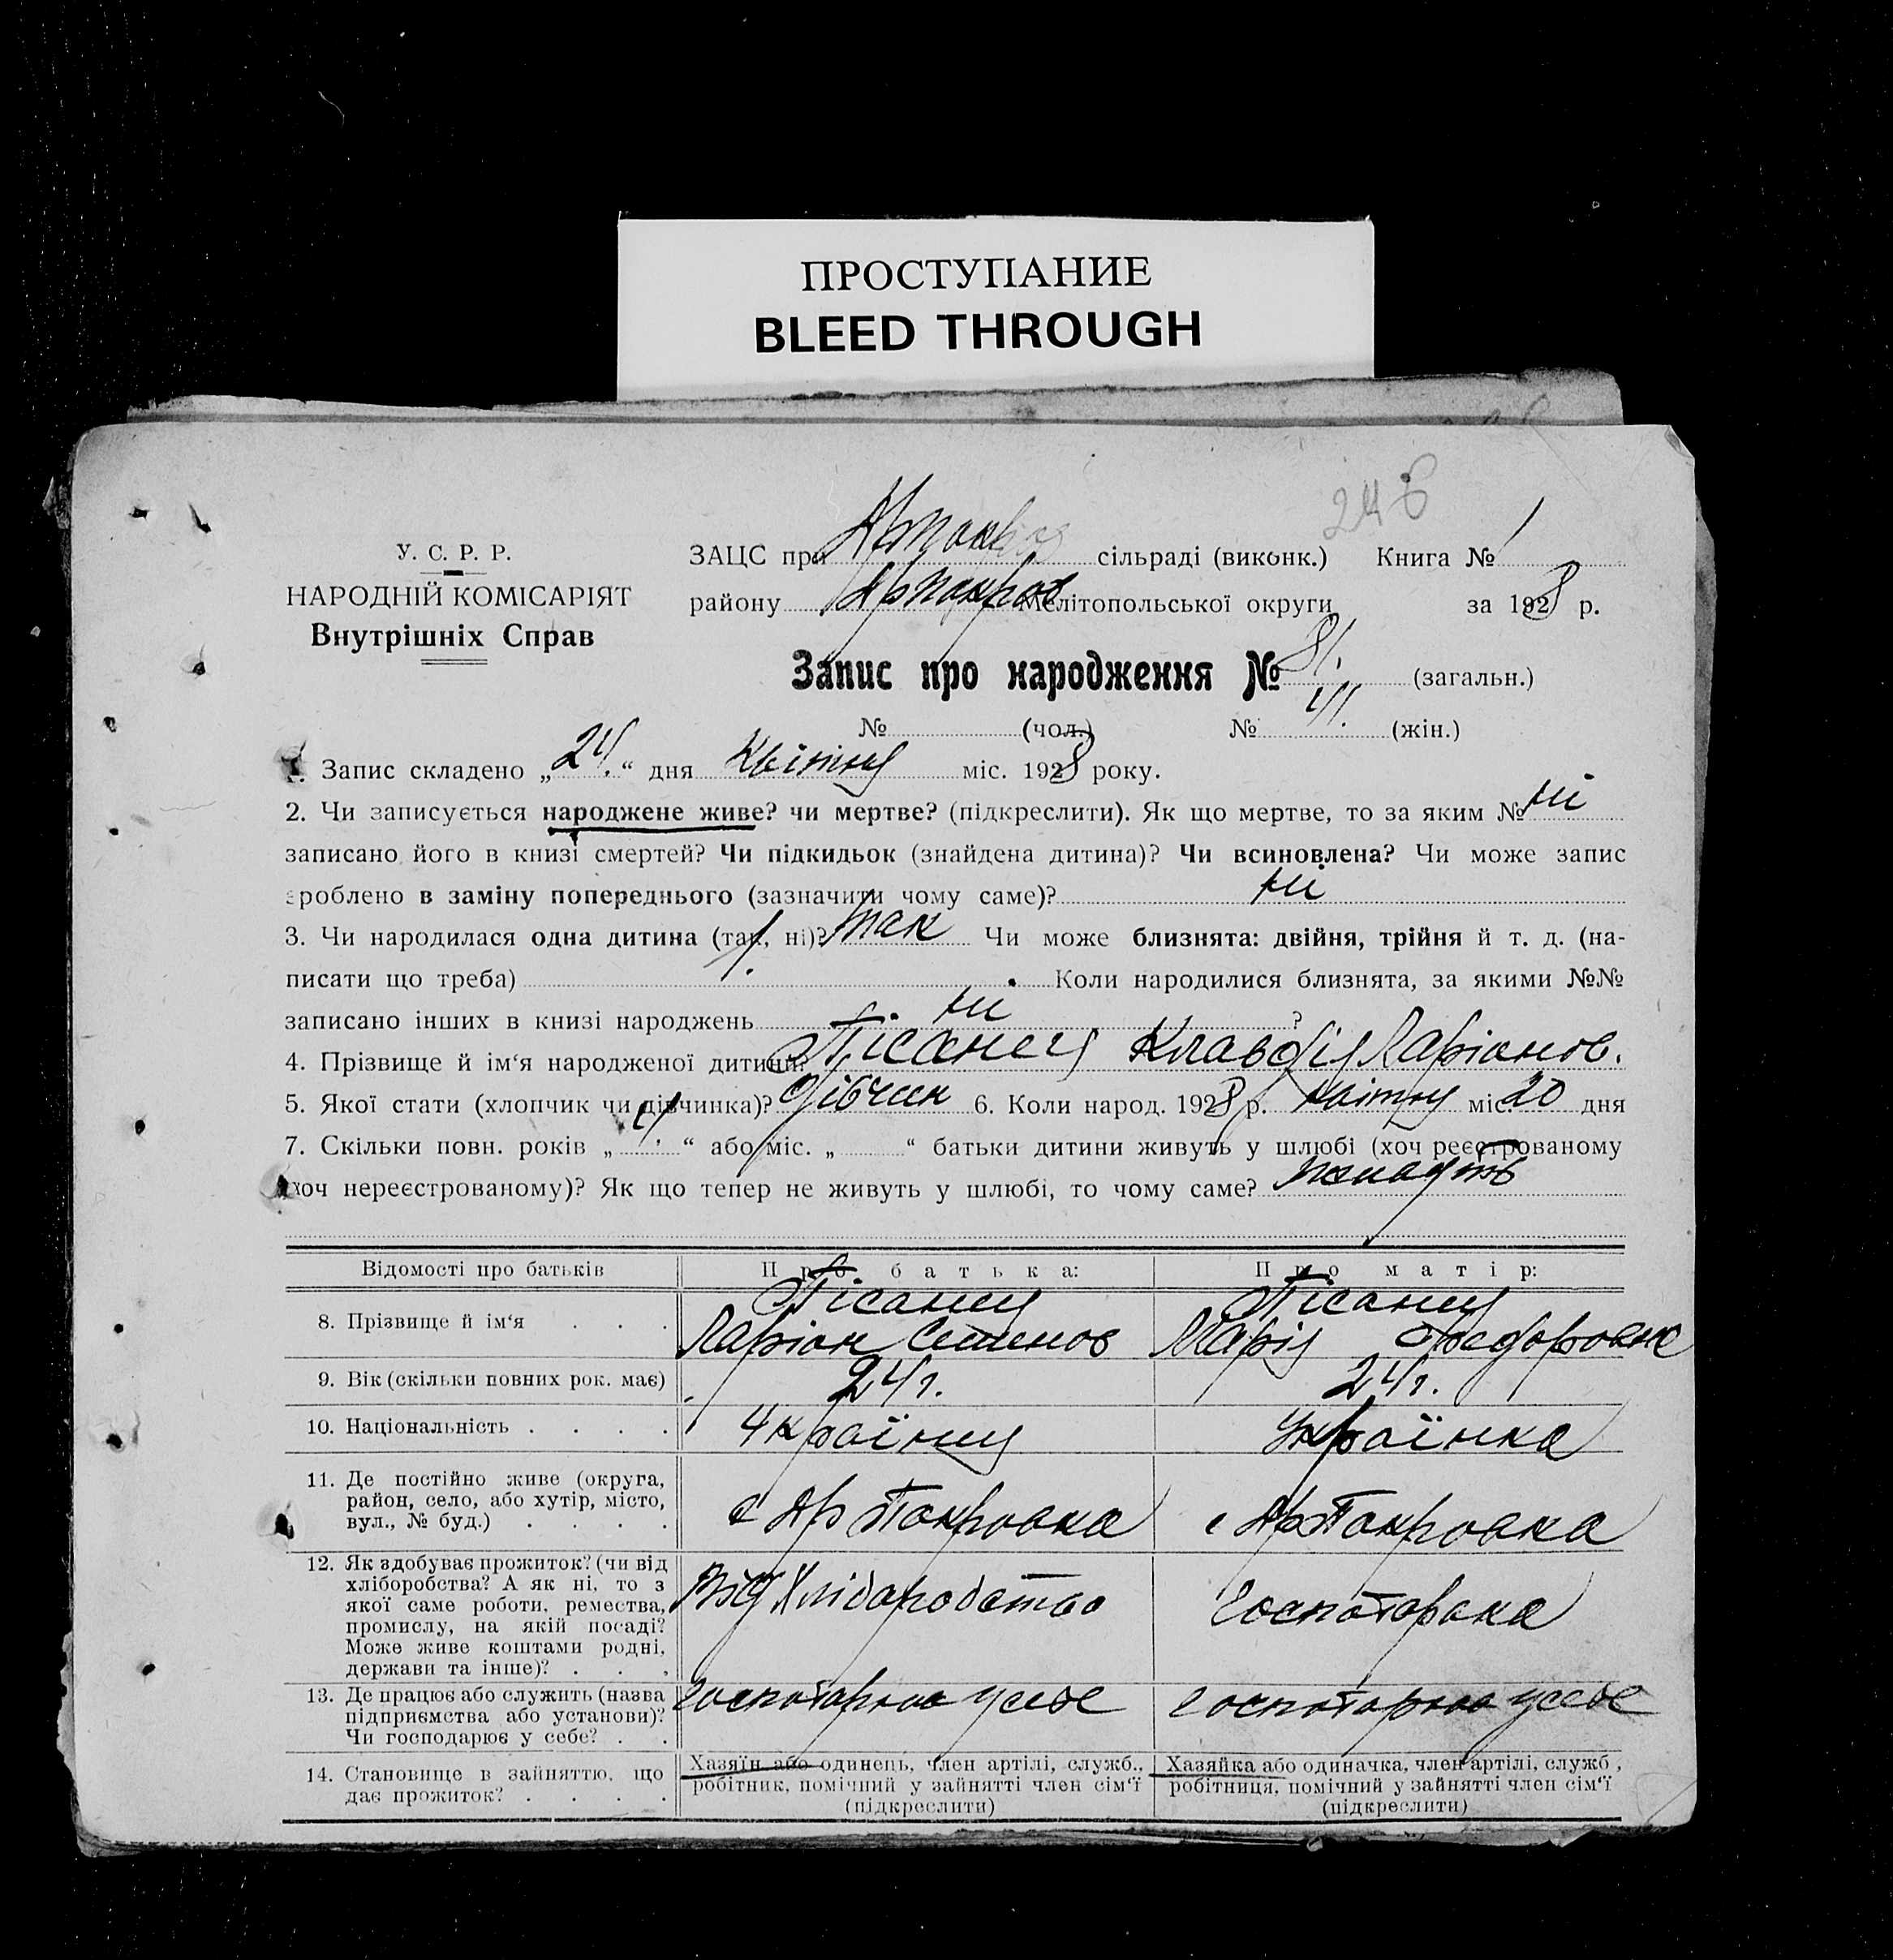 ПРОСТУПАНИЕ
BLEED THROUGH
246
У. С. Р. Р.
НАРОДНІЙ КОМІСАРІЯТ
Внутрішніх Справ
ЗАЦС при сільраді (виконк.) Книга № 1
району Мелітопольської округи за 1928 р.
Запис про народження № 81. (загальн.)
№ (чол.) № 41. (жін.)
1. Запис складено „24.“ дня Квітня міс. 1928 року.
2. Чи записується народжене живе? чи мертве? (підкреслити). Як що мертве, то за яким № ні
записано його в книзі смертей? Чи підкидьок (знайдена дитина)? Чи всиновлена? Чи може запис
зроблено в заміну попереднього (зазначити чому саме)? ні
3. Чи народилася одна дитина (так, ні)? так Чи може близнята: двійня, трійня й т. д. (на-
писати що треба) Коли народилися близнята, за якими №№
записано інших в книзі народжень ні ?
4. Прізвище й ім‘я народженої дитини? Пісанец Клавдія Ларіонов.
5. Якої стати (хлопчик чи дівчинка)? дівчин 6. Коли народ. 1928 р. квітня міс. 20 дня
7. Скільки повн. років „ “ або міс. „ “ батьки дитини живуть у шлюбі (хоч реєстрованому
хоч нереєстрованому)? Як що тепер не живуть у шлюбі, то чому саме?
Відомості про батьків Про батька: Про матір:
8. Прізвище й ім‘я . . . Пісанец Ларіон Семенов Пісанец Марія Федоровна
9. Вік (скільки повних рок. має) 24 г. 24 г.
10. Національність . . . . Українец Українка
11. Де постійно живе (округа,
район, село, або хутір, місто,
вул., № буд.) . . . . с Ар Покровка с Ар Покровка
12. Як здобуває прожиток? (чи від
хліборобства? А як ні, то з
якої саме роботи, ремества,
промислу, на якій посаді?
Може живе коштами родні,
держави та інше)? . . . Від Хліборобства Госпотарка
13. Де працює або служить (назва
підприємства або установи)?
Чи господарює у себе? . . госпотарює усебе госпотарює усебе
14. Становище в зайняттю, що
дає прожиток? . . . .
Хазяїн або одинець, член артілі, служб.,
робітник, помічний у зайнятті член сім‘ї
(підкреслити)
Хазяйка або одиначка, член артілі, служб,
робітниця, помічний у зайнятті член сім‘ї
(підкреслити)